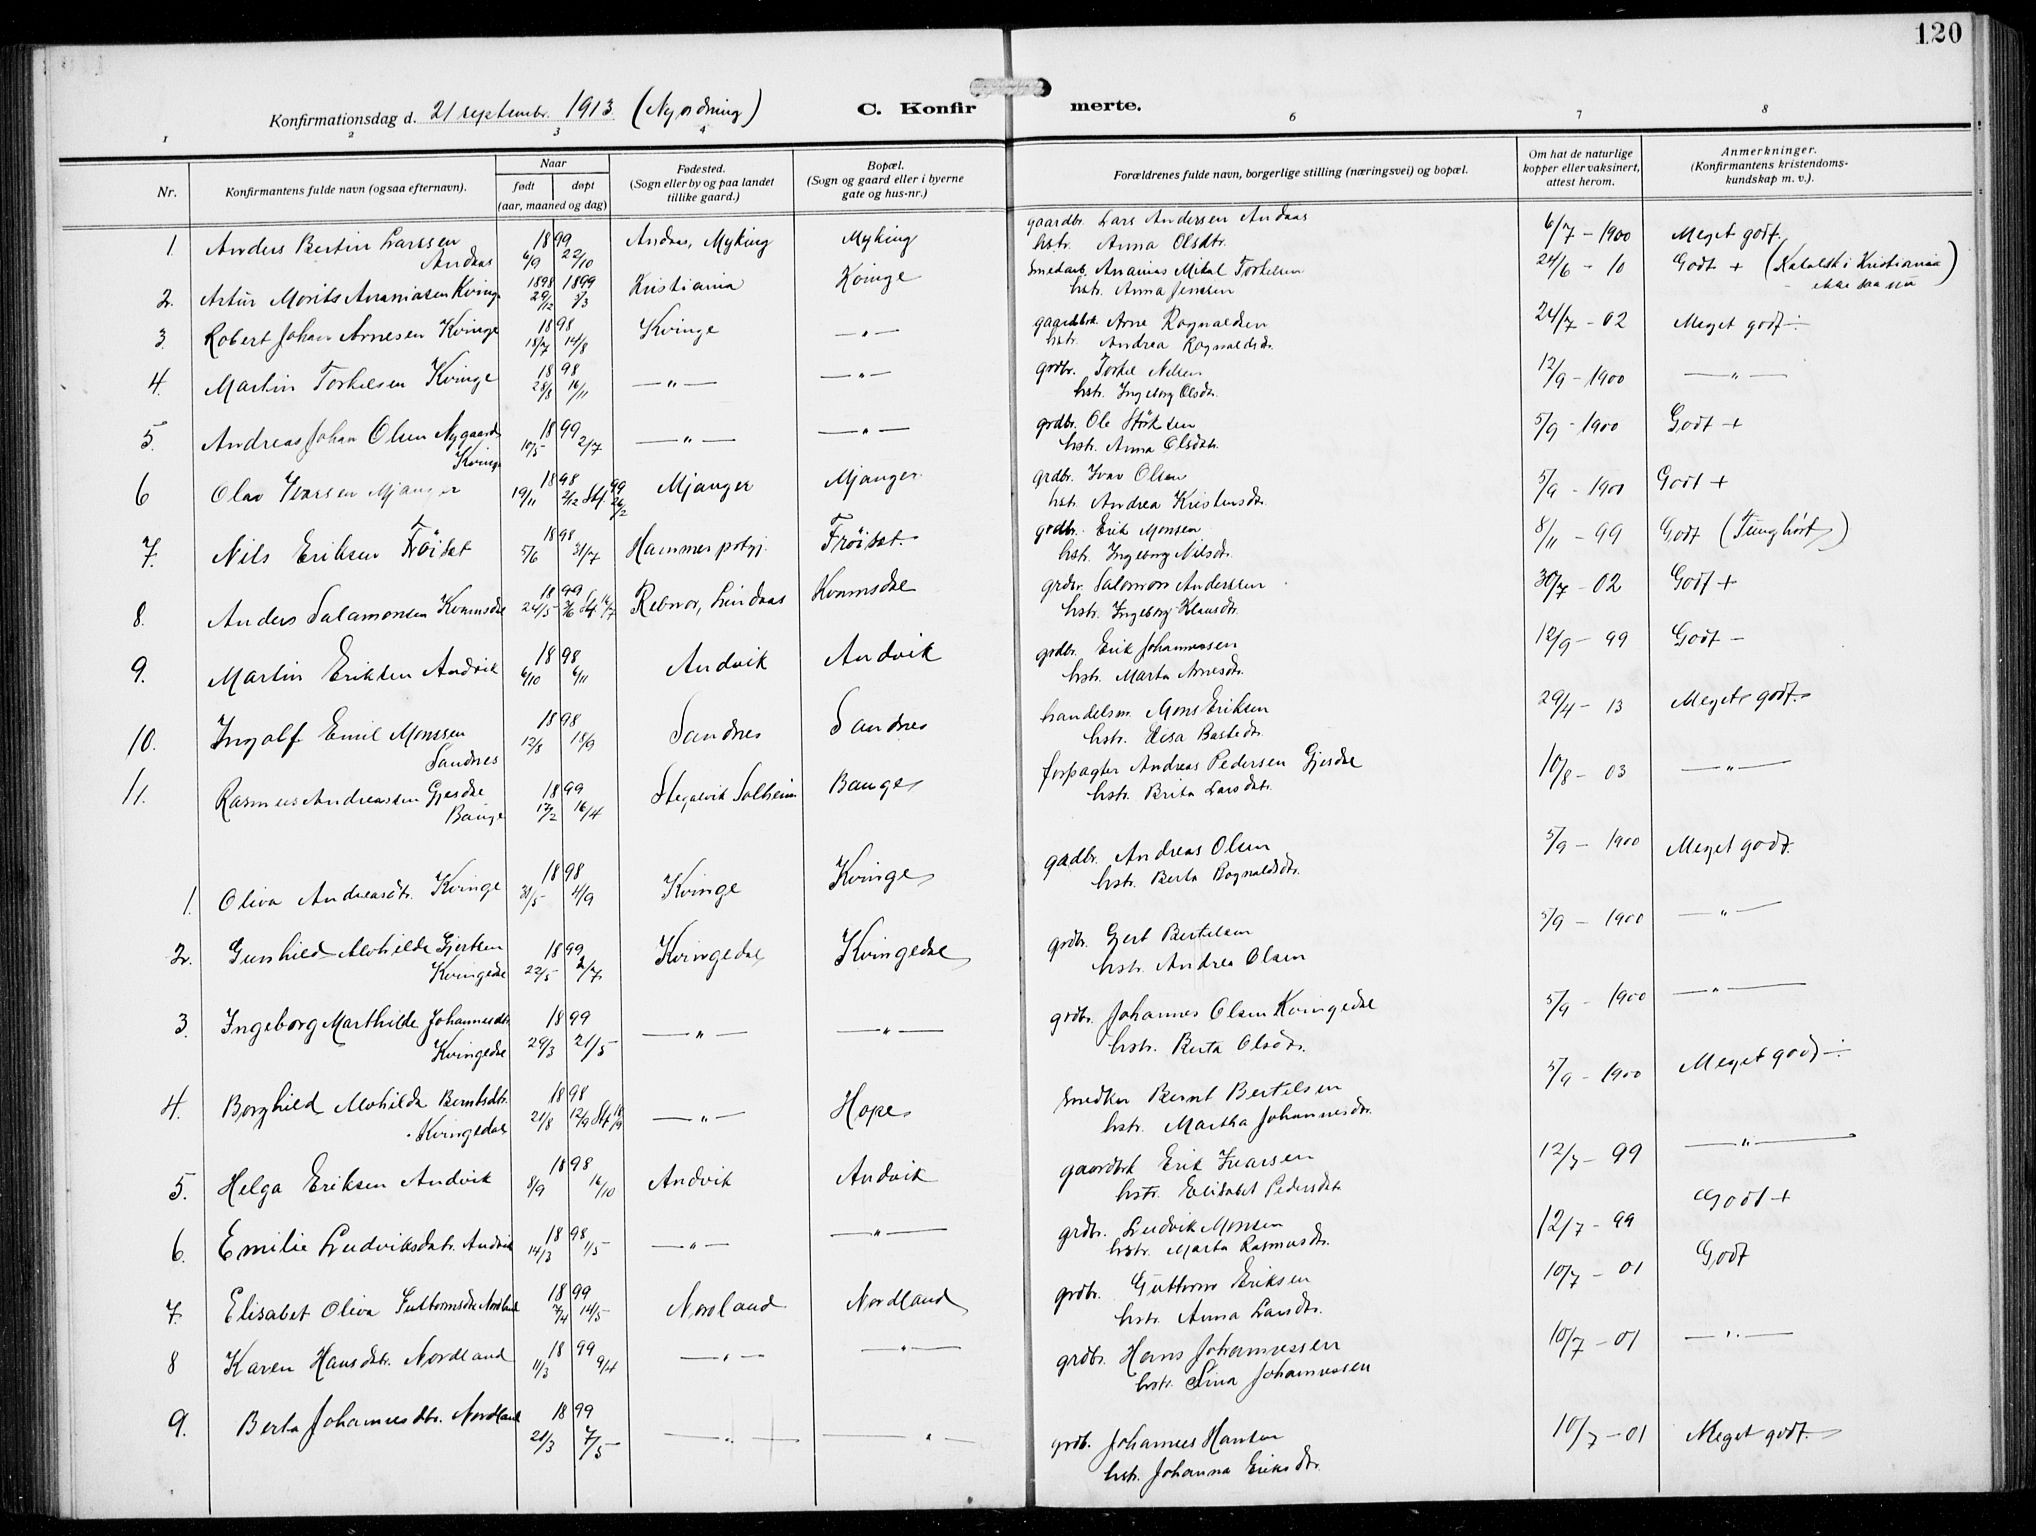 120
Konfirmationsdag d. 21 septembr. 1913 (Nyordning) C. Konfirmerte.
1 2 3 4 6 7 8
Nr. Konfirmantens fulde navn (ogsaa efternavn). Naar født døpt (aar, maaned og dag) Fødested. (Sogn eller by og paa landet tillike gaard.) Bopæl. (Sogn og gaard eller i byerne gate og hus-nr.) Forældrenes fulde navn, borgerlige stilling (næringsvei) og bopæl. Om hat de naturlige kopper eller vaksinert, attest herom. Anmerkninger. (Konfirmantens kristendomskundskap m. v.).
1. Anders Bertin Larssen Andaas 1899 6/9 22/10 Andaas, Myking Myking gaardbr. Lars Andersen Andaas hstr. Anna Olsdtr. 6/7 - 1900 Meget godt.
2. Artur Morits Ananiasen Kvinge 1898 29/12 1899 3/3 Kristiania Kvinge smedarb. Ananias Mikal Torkelsen hstr. Anna Jenssen 24/6 - 10 Godt + (Katolsk i Kristiania ikke saa nu)
3. Robert Johan Arnesen Kvinge 1898 18/7 14/8 Kvinge —"— gaardbrk. Arne Rognaldsen hstr. Andrea Rognaldsdr. 24/7 - 02 Meget godt ÷
4. Martin Torkelsen Kvinge 1898 28/8 16/11 —"— —"— grdbr. Torkel Nilsen hstr. Ingeborg Olsdtr. 12/9 - 1900 —"—
5. Andreas Johan Olsen Nygaard Kvinge 1899 10/5 2/7 —"— —"— grdbr. Ole Störksen hstr. Anna Olsdtr. 5/9 - 1900 Godt +
6 Olav Ivarsen Mjanger 1898 19/11 2/12 Stf. 99 26/2 Mjanger Mjanger grdbr. Ivar Olsen hstr. Andrea Kristensdr. 5/9 - 1900 Godt +
7. Nils Eriksen Fröiset 1898 5/6 31/7 Hammer prstgj. Fröiset. grdbr. Erik Monsen hstr. Ingeborg Nilsdr. 8/11 - 99 Godt (Tunghört)
8. Anders Salamonsen Kvamsdal 1899 24/5 Stf. 16/7 Rebnor, Lindaas Kvamsdal grdbr. Salomon Anderssen hstr. Ingeborg Klausdtr. 30/7 - 02 Godt +
9. Martin Eriksen Andvik 1898 6/10 6/11 Andvik Andvik grdbr. Erik Johannessen hstr. Marta Arnesdtr. 12/9 - 99 Godt -
10. Ingolf Emil Monssen Sandnes 1898 12/8 18/9 Sandnes Sandnes handelsm. Mons Eriksen hstr. Elisa Bastedtr. 29/4 - 13 Meget godt.
11. Rasmus Andreassen Gjesdal Bauge 1899 17/2 16/4 Stegalvik Solheim Bauge forpagter Andreas Pedersen Gjesdal hstr. Brita Larsdtr. 10/8 - 03 —"—
1. Oliva Andreasdtr. Kvinge 1898 31/5 4/9 Kvinge Kvinge gardbr. Andreas Olsen hstr. Berta Rognaldsdtr. 5/9 - 1900 Meget godt.
2. Gunhild Alvhilde Gjertsen Kvingedal 1899 22/5 2/7 Kvingedal Kvingedal grdbr. Gjert Bertelsen hstr. Andrea Olsen 5/9 - 1900 —"—
3. Ingeborg Marthilde Johannesdtr. Kvingedal 1899 29/3 21/5 —"— —"— grdbr. Johannes Olsen Kvingedal hstr. Berta Olsdtr. 5/9 - 1900 —"—
4. Borghild Alvhilda Berntsdtr. Kvingedal 1898 21/8 12/9 Stf. 18/9 —"— Hope smedker Bernt Bertelsen hstr. Martha Johannesdtr. 5/9 - 1900 Meget godt ÷
5. Helga Eriksen Andvik 1898 8/9 16/10 Andvik Andvik gaardbrk Erik Ivarsen hstr. Elisabet Pedersdtr. 12/7 - 99 —"—
6. Emilie Ludviksdatr. Andvik 1898 14/3 1/5 —"— —"— grdbr. Ludvik Monsen hstr. Marta Rasmusdtr. 12/7 - 99 Godt +
7. Elisabet Oliva Guttormsdtr Nordland 1899 7/4 14/5 Nordland Nordland grdbr. Guttorm Eriksen hstr. Anna Larsdtr. 10/7 - 01 Godt
8 Karen Hansdatr. Nordland 1899 11/3 9/4 —"— —"— grdbr. Hans Johannessen hstr. Sina Johannessen 10/7 - 01 —"—
9. Berta Johannesdtr. Nordland 1899 21/3 7/5 —"— —"— grdb. Johannes Hansen hstr. Johanna Eriksdtr. 10/7 - 01 Meget godt.